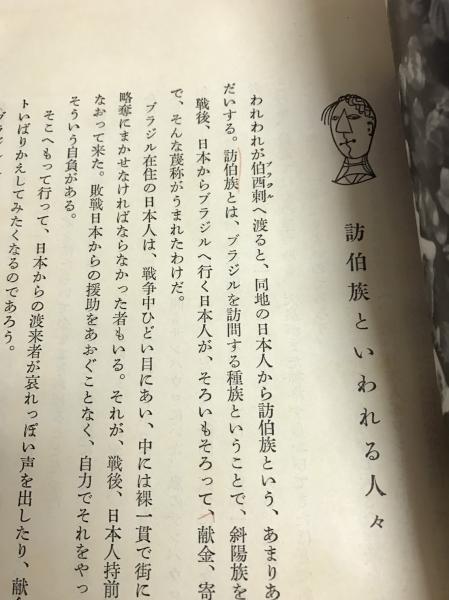 訪伯族といわれる人々
われわれが伯西刺へ渡ると、同地の日本人から訪伯族という、あまりあ
だいする。訪伯族とは、ブラジルを訪問する種族ということで、斜陽族を
戦後、日本からブラジルへ行く日本人が、そろいもそろって、献金、寄
で、そんな蔑称がうまれたわけだ。
ブラジル在住の日本人は、戦争中ひどい目にあい、中には裸一貫で街に
略奪にまかせなければならなかった者もいる。それが、戦後、日本人持前
なおって来た。敗戦日本からの援助をあおぐことなく、自力でそれをやっ
そういう自負がある。
そこへもって行って、日本からの渡来者が哀れっぽい声を出したり、献金
トいばりかえしてみたくなるのであろう。